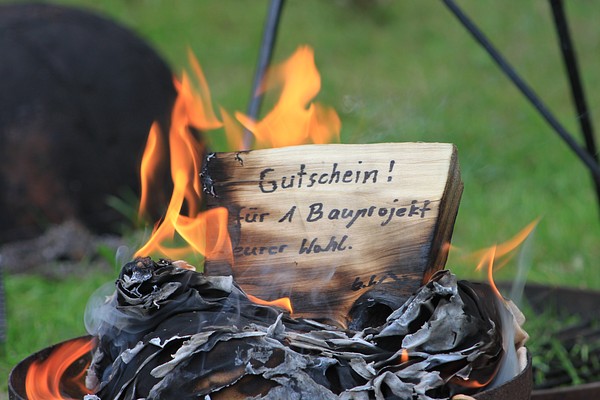 Gutschein!
für 1 Bauprojekt
eurer Wahl.